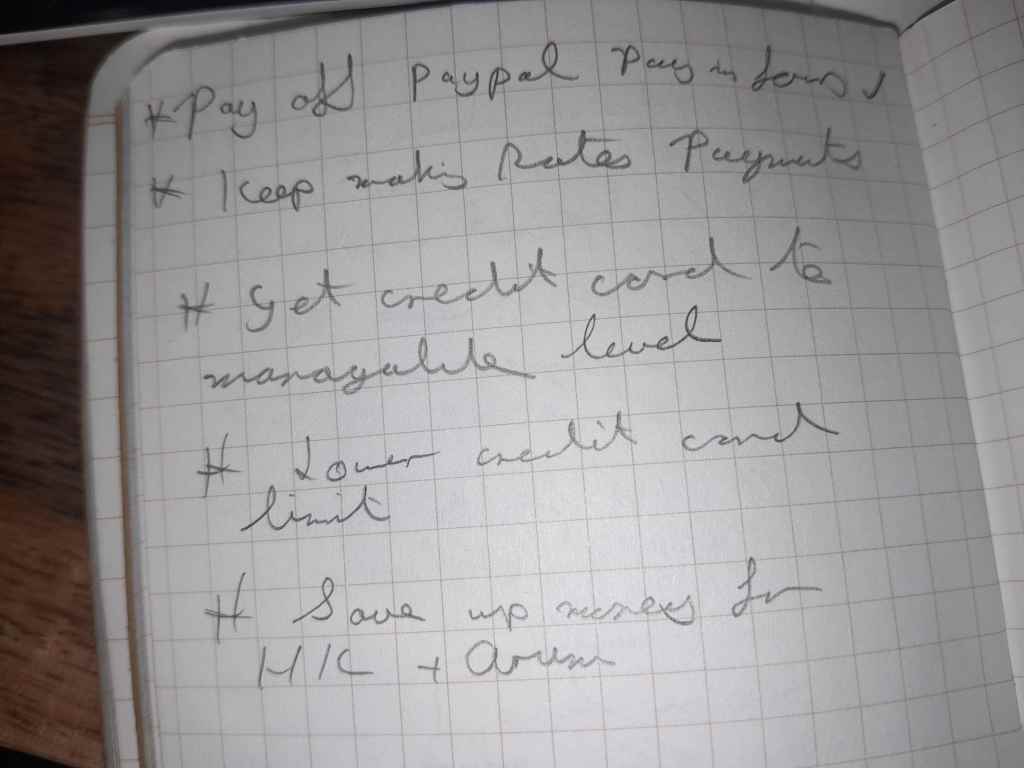 * Pay off Paypal Pay in fours,
* Keep making Rates Payments
# Get credit card to
managable level
# Lower credit card
limit
# Save up money for
HK +